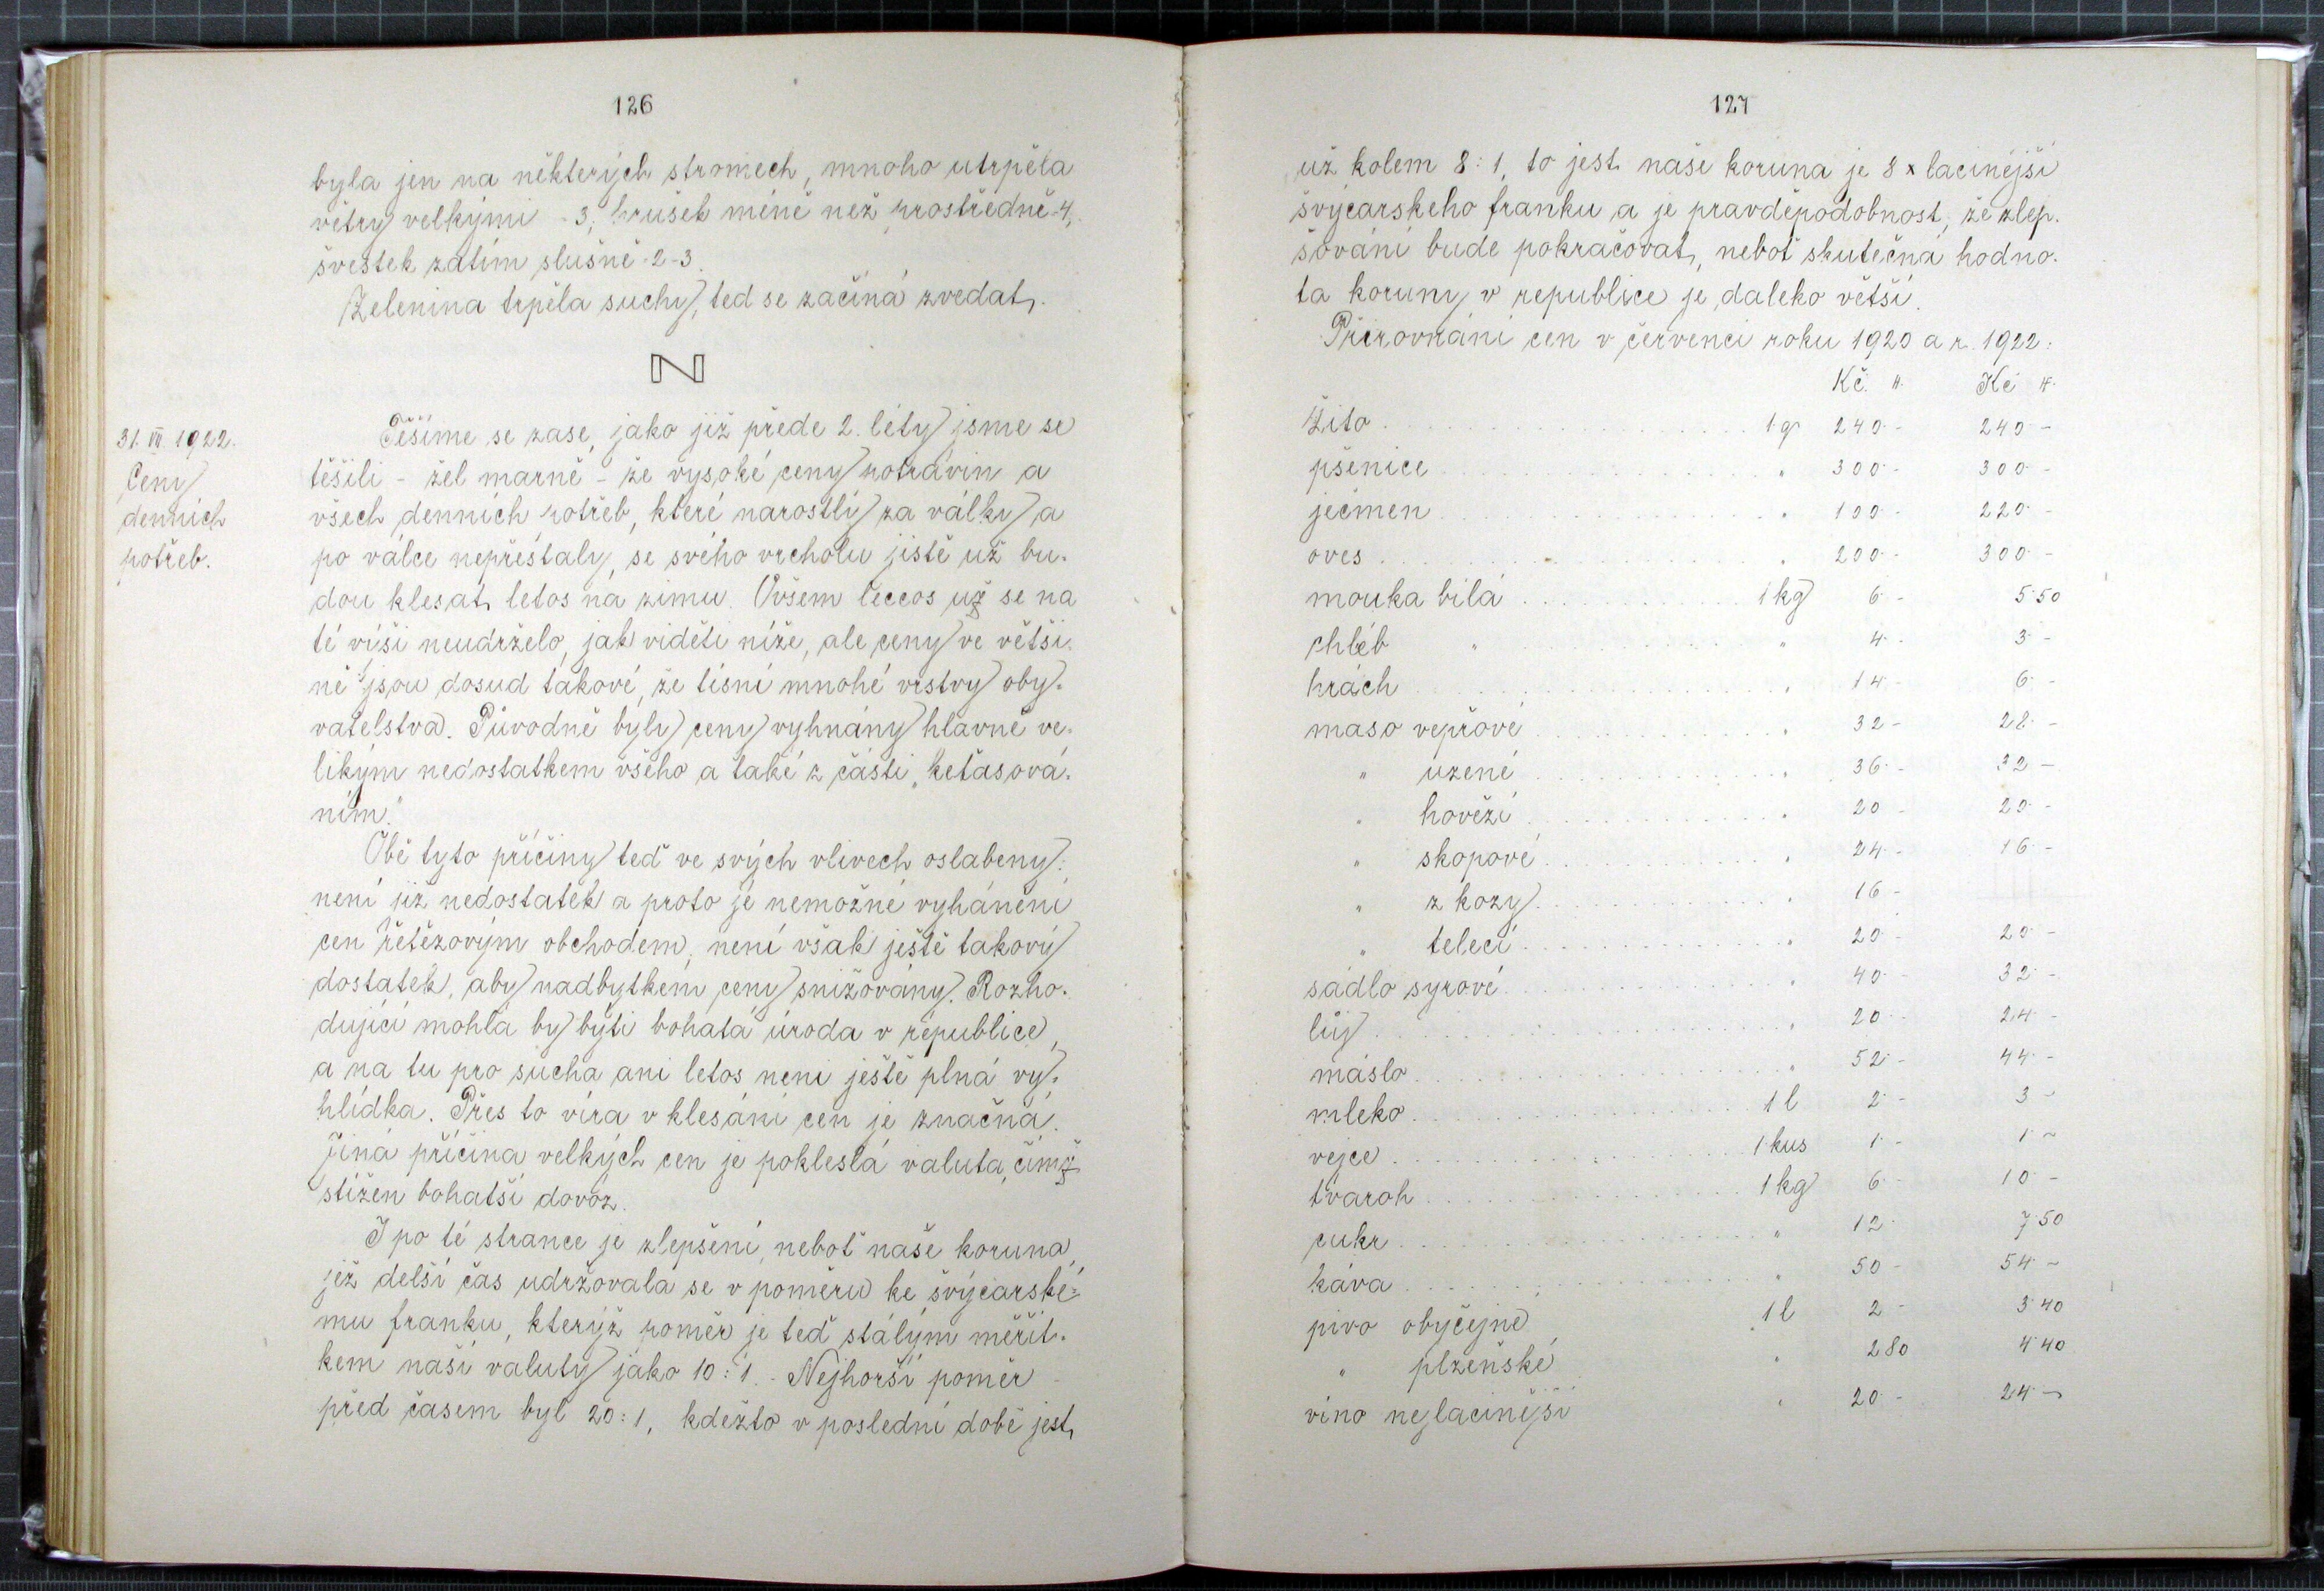 126
byla jen na některých stromech, mnoho utrpěla
větry velkými - 3; hrušek méně než prostředně - 4,
švestek zatím slušně - 2-3.
Zelenina trpěla suchy, teď se začíná zvedat.
N
31. VII. 1922.
Ceny
denních
potřeb.
Těšíme se zase, jako již přede 2. léty jsme se
těšili - žel marně - že vysoké ceny potravin a
všech denních potřeb, které narostly za války a
po válce nepřestaly, se svého vrcholu jistě už bu-
dou klesat letos na zimu. Ovšem leccos už se na
té výši neudrželo, jak viděti níže, ale ceny ve větši-
ně jsou dosud takové, že tísní mnohé vrstvy oby-
vatelstva. Původně byly ceny vyhnány hlavně ve-
likým nedostatkem všeho a také z části „keťasová-
ním."
Obě tyto příčiny teď ve svých vlivech oslabeny:
není již nedostatek a proto je nemožné vyhánění
cen řetězovým obchodem, není však ještě takový
dostatek, aby nadbytkem ceny snižovány. Rozho-
dující mohla by býti bohatá úroda v republice,
a na tu pro sucha ani letos není ještě plná vy-
hlídka. Přes to víra v klesání cen je značná.
Jiná příčina velkých cen je pokleslá valuta, čímž
stížen bohatší dovoz.
I po té strance je zlepšení, neboť naše koruna,
jež delší čas udržovala se v poměru ke švýcarské-
mu franku, kterýž poměr je teď stálým měřít-
kem naší valuty jako 10 : 1. - Nejhorší poměr
před časem byl 20 : 1, kdežto v poslední době jest
127
už kolem 8 : 1, to jest naše koruna je 8 x lacinější
švýcarského franku, a je pravděpodobnost, že zlep-
šování bude pokračovat, neboť skutečná hodno-
ta koruny v republice je daleko větší.
Přirovnání cen v červenci roku 1920 a r. 1922:
Kč h. Kč h.
Žito . . . 1 q 240 - 240 -
pšenice . . . " 300 - 300 -
ječmen . . . " 100 - 220 -
oves . . . " 200 - 300 -
mouka bílá . . . 1 kg 6 - 5·50
chléb " . . . " 4 - 3 -
hrách . . . " 14 - 6 -
maso vepřové . . . " 32 - 28 -
" uzené . . . " 36 - 32 -
" hovězí . . . " 20 - 20 -
" skopové . . . " 24 - 16 -
" z kozy . . . " 16 -
" telecí . . . " 20 - 20 -
sádlo syrové . . . " 40 - 32 -
lůj . . . " 20 - 24 -
máslo . . . " 52 - 44 -
mléko . . . 1 l 2 - 3 -
vejce . . . 1 kus 1 - 1 -
tvaroh . . . 1 kg 6 - 10 -
cukr . . . " 12 - 7·50
káva . . . " 50 - 54 -
pivo obyčejné 1 l 2 - 3·40
" plzeňské " 2·80 4·40
víno nejlacinější " 20 - 24 -